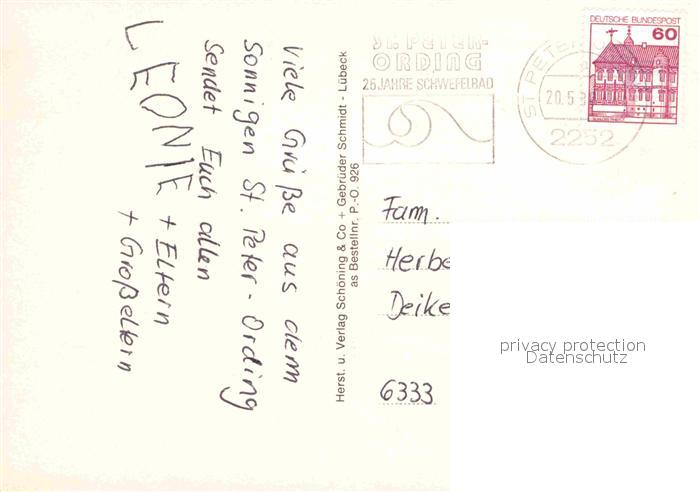 Viele Grüße aus dem
Sonnigen St. Peter-Ording
Sendet Euch allen
LEONIE + Eltern
+ Großeltern
Herst. u. Verlag Schöning & Co + Gebrüder Schmidt - Lübeck
as Bestellnr. P.-O. 926
ST. PETER-
ORDING
25 JAHRE SCHWEFELBAD
ST PETER
20.5.8
2252
DEUTSCHE BUNDESPOST
60
Fam.
Herbe
Deike
6333
privacy protection
Datenschutz